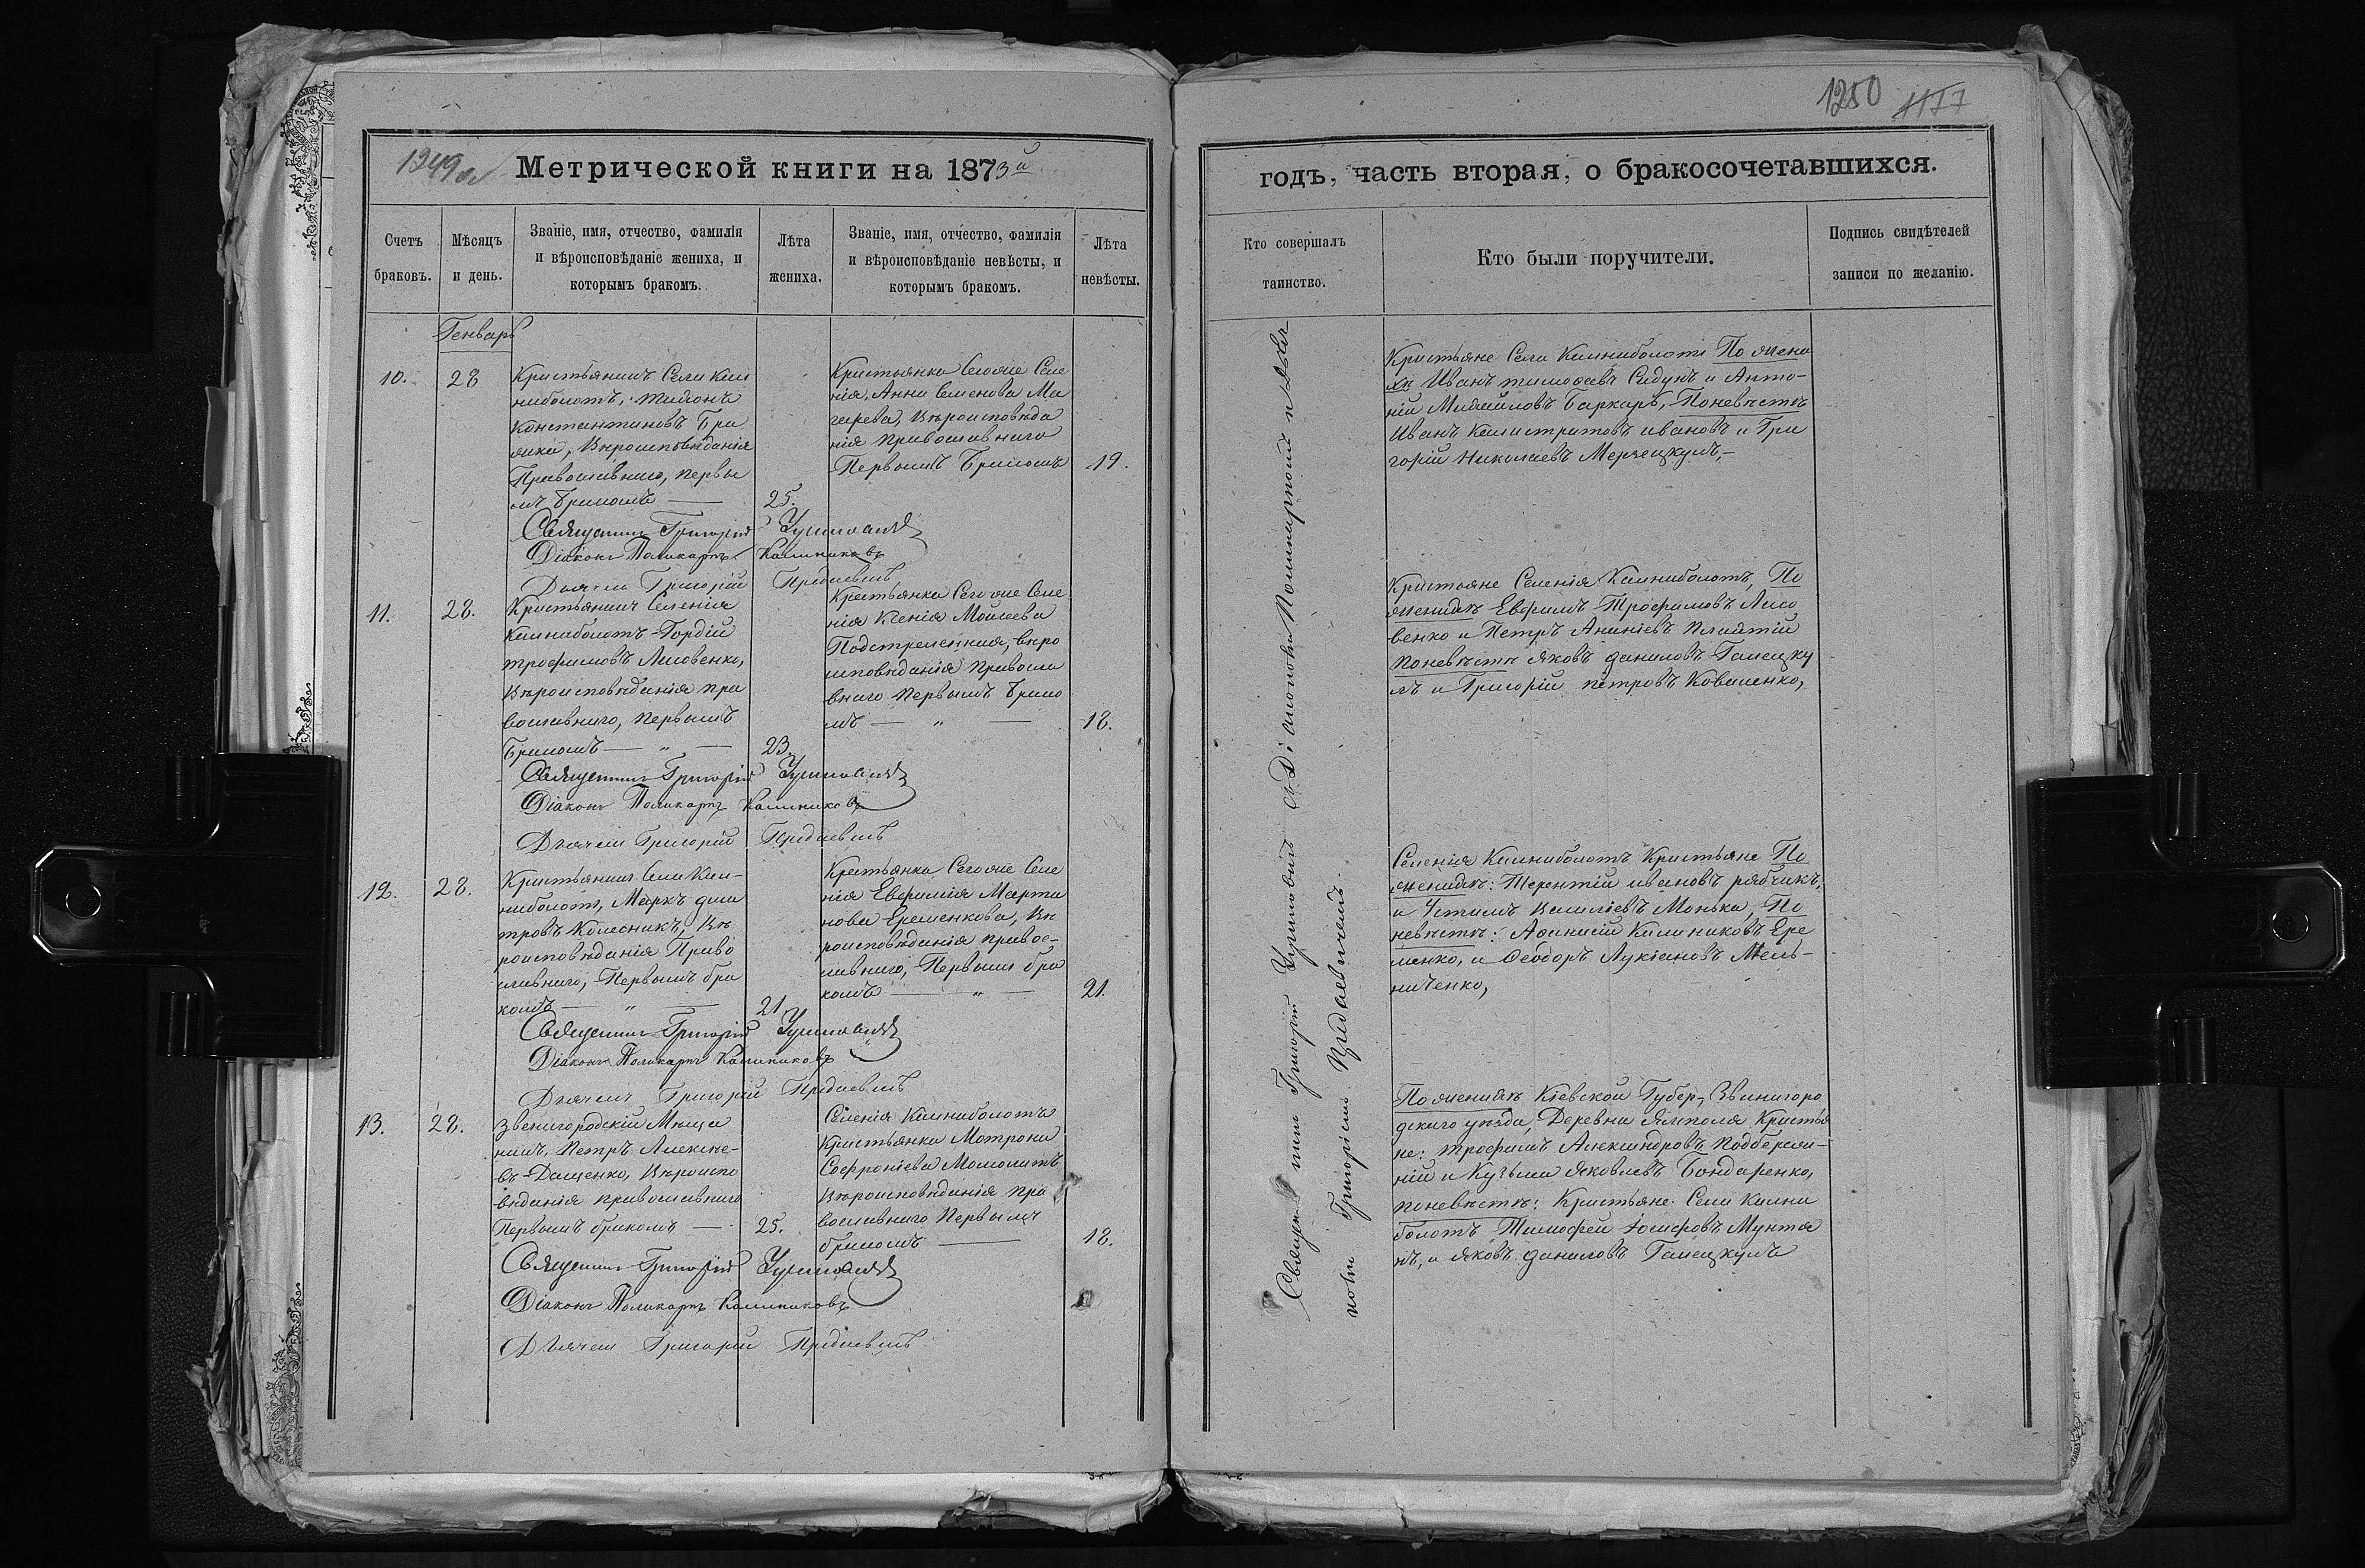 1249 об
Метрической книги на 1873й
Счетъ
браковъ.
Мѣсяцъ
и день.
Званіе, имя, отчество, фамилія
и вѣроисповѣданіе жениха, и
которымъ бракомъ.
Лѣта
жениха.
Званіе, имя, отчество, фамилія
и вѣроисповѣданіе невѣсты, и
которымъ бракомъ.
Лѣта
невѣсты.
Генварь
10.
28
Кристьянинъ Села Кал
ниболотъ,
Константиновъ
Вѣроисповѣданія
Православнаго, первы
мъ бракомъ
25.
Кристьянка Сегоже Селе
нія, Анна Семенова Ма
герева, Вѣроисповѣда
нія православнаго
Первымъ Бракомъ
19.
Священникъ Григорій
Діаконъ Поликарпъ Калиниковъ
Дьячекъ Григорій
11.
28.
Кристьянинъ Селенія
Калниболотъ Гордій
трофимовъ Лисовенко,
Вѣроисповѣданія пра
вославнаго, первымъ
Бракомъ — „ —
23.
Крестьянка Сегоже Селе
нія Ксенія Моисеева
вѣро
исповѣданія правосла
внаго первымъ брако
мъ — „ —
18.
Священникъ Григорій
Діаконъ Поликарпъ Калиниковъ
Дьячекъ Григорій
12.
28.
Кристьянинъ Села Кал-
ниболотъ, Маркъ дми
тровъ Колесникъ, Вѣ
роисповѣданія Право
славнаго, Первымъ бра
комъ — „ —
21
Крестьянка Сегоже Селе
нія Евфимія Марти
нова Еременкова, Вѣ
роисповѣданія правос-
лавнаго, Первымъ бра
комъ — „ —
21.
Священникъ Григорій
Діаконъ Поликарпъ Калиниковъ
Дьячекъ Григорій
13.
28.
Звенигородскій Мѣща
нинъ, Петръ Алексѣе-
въ Дащенко, Вѣроиспо
вѣданія православнаго
Первымъ бракомъ —
25.
Селенія Калниболотъ
Кристьянка Мотрона
Софроніева
Вѣроисповѣданія пра
вославнаго Первымъ
бракомъ —
18.
Священникъ Григорій
Діаконъ Поликарпъ Калиниковъ
Дьячекъ Григорій
1250
1177
годъ, часть вторая, о бракосочетавшихся.
Кто совершалъ
таинство.
Кто были поручители.
Подпись свидѣтелей
записи по желанію.
Священникъ Григорій съ Діакономъ Поликарпомъ и Дья
Григоріемъ
Кристьяне Села Калниболотъ По жени
хѣ Иванъ тимофеевъ Садукъ и Анто-
ній Михайловъ Баркарь, Поневѣстѣ
Иванъ Калистратовъ ивановъ и Гри
горій Николаевъ
Крестьяне Селенія Калниболотъ, По
женихѣ Евфимъ Трофимовъ Лисо
венко и Петръ Ананіевъ
поневѣстѣ Яковъ даниловъ Галецку
лъ и Григорій петровъ Коваленко,
Селенія Калниболотъ Крестьяне По
женихѣ: Терентій ивановъ рябчикъ,
и Устимъ Василіевъ Монька, По
невѣстѣ: Афанасій Калиниковъ Ере
менко, и Феодоръ Лукіановъ Мель-
ниченко,
По женихѣ Кіевской Губер., Звенигоро
дскаго уѣзда, Деревни Ямполя Кристья
не: трофимъ Александровъ
ній и Кузьма Яковлевъ Бондаренко,
поневѣстѣ: Крестьяне Села Кални
болотъ Тимофей Іосифовъ Мунтя
нъ, и Яковъ даниловъ Галецкулъ